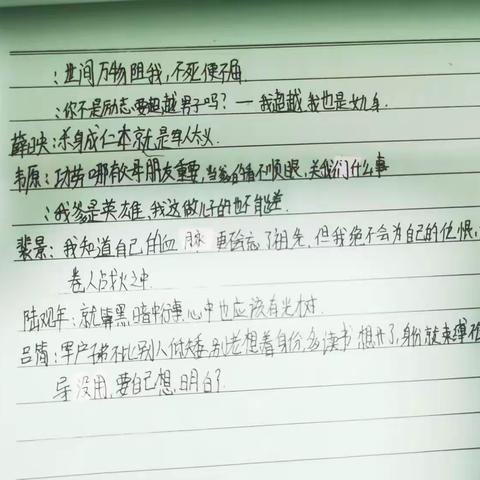 ：世间万物阻我，不死便不屈.
：你不是励志要超越男子吗？— 我超越，我也是女身.
薛映：杀身成仁本就是军人大义
韦原：功劳哪有父母朋友重要，当爹看不顺眼，关我们什么事
：我爹是英雄，我这做儿子的也不能差.
裴景：我知道自己的血脉，更会忘了祖先，但我绝不会为自己的仇恨，
卷入战火之中.
陆观年：就算黑暗中行事，心中也应该有光才对.
吕简：军户子弟不比别人低矮，别老想着身份，多读书，想开了，身份就束缚不
导没用，要自己想明白了.